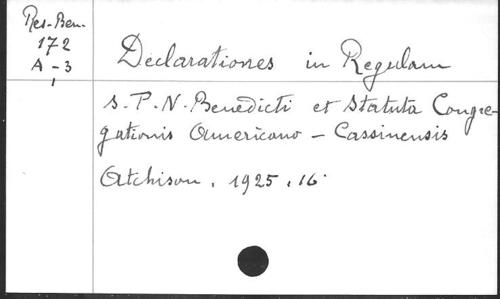 Res-Ben.
172
A-3
Declarationes in Regulam
S. P. N. Benedicti et Statuta Congre-
gationis Americano - Cassinensis
Atchison, 1925, 16°